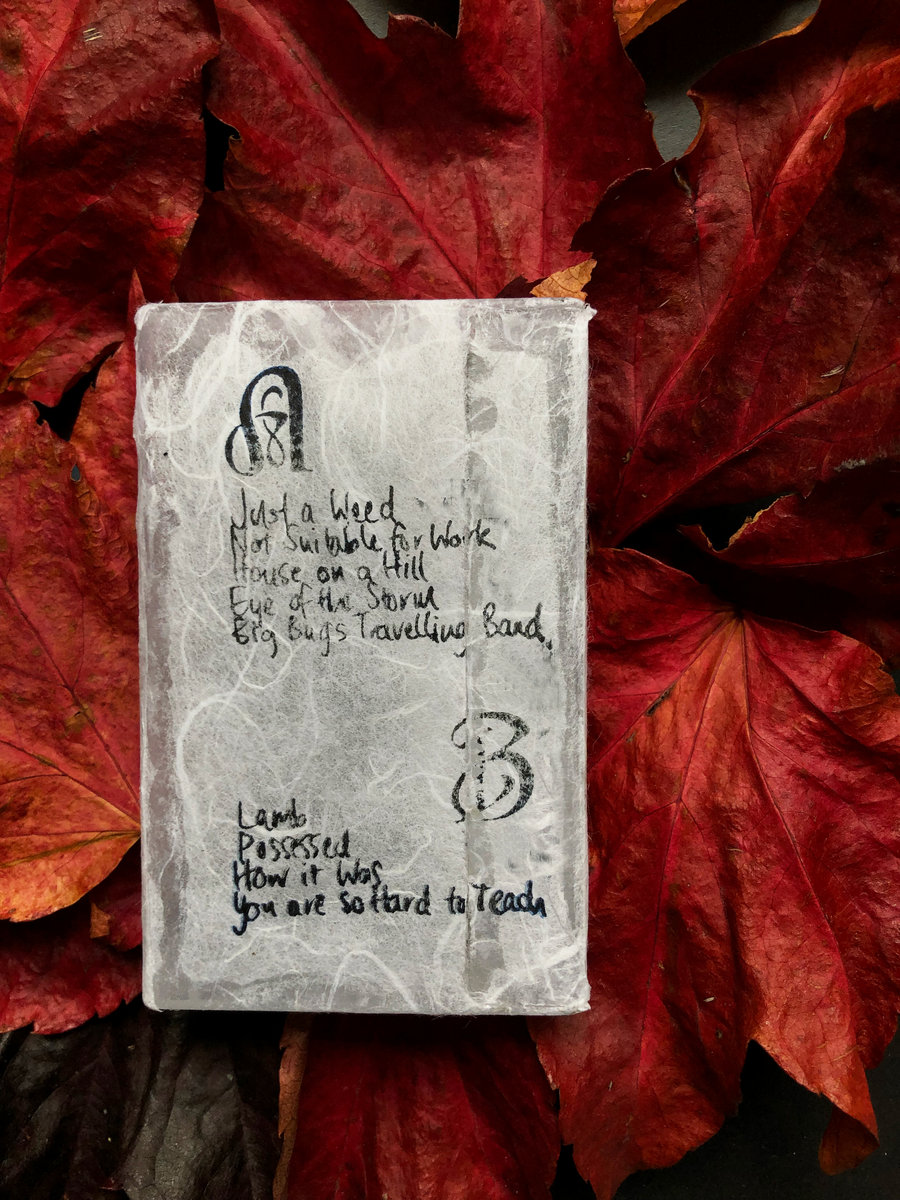 A
Just a Weed
Not Suitable for Work
House on a Hill
Eye of the Storm
Big Bugs Travelling Band.
B
Lamb
Possessed
How it Was
You are so Hard to Teach